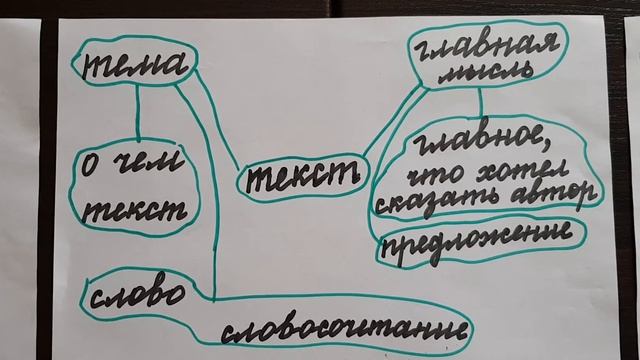 тема
главная
мысль
о чем
текст
текст
главное,
что хотел
сказать автор
предложение
слово
словосочетание